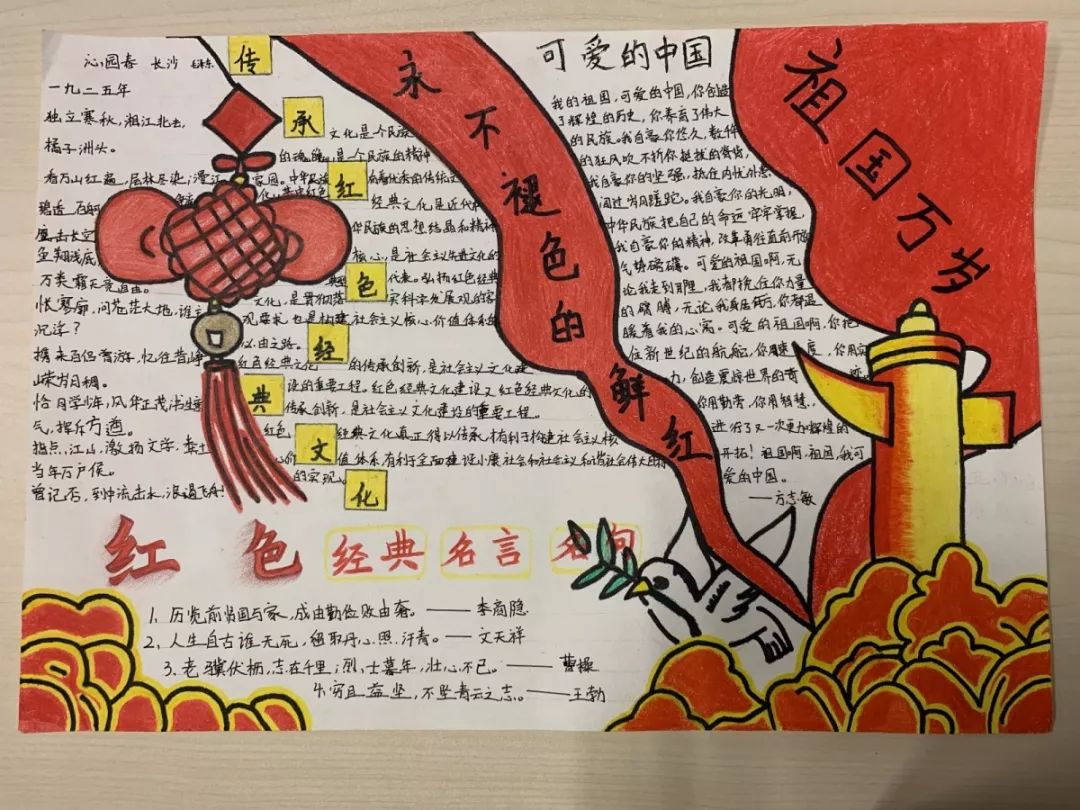 沁园春 长沙
一九二五年
独立寒秋，湘江北去，
橘子洲头。
看万山红遍，层林尽染；漫江
碧透，百舸
鹰击长空
鱼翔浅底
万类霜天竞自由
怅寥廓，问苍茫大地，谁主
沉浮？
携来百侣曾游，忆往昔峥
嵘岁月稠。
恰同学少年，风华正茂；书生意
气，挥斥方遒。
指点江山，激扬文字，粪土
当年万户侯。
曾记否，到中流击水，浪遏飞舟！
传
承
红
色
经
典
文
化
文化是个民族
的魂魄，是个民族的精神
家园。中华民族
经典文化是近代
华民族的思想结晶和精神
核心，是社会主义先进文化的
代表。弘扬红色经典
文化，是贯彻落实科学发展观的客
观要求，也是构建社会主义核心价值体系的
必由之路。
红色经典文化的传承创新，是社会主义文化建
设的重要工程。红色经典文化建设又红色经典文化的
传承创新，是社会主义文化建设的重要工程。
红色经典文化真正得以传承，才有利于构建社会主义核
心价值体系有利于全面建设小康社会和社会主义和谐社会伟大目标
的实现。
永不褪色的鲜红
可爱的中国
我的祖国，可爱的中国，你创造
了辉煌的历史，你养育了伟大
的民族。我自豪你悠久，数千年
的狂风吹不折你挺拔的脊背，
我自豪你的坚强，抵住内忧外患
闯过岁月蹉跎。我自豪你的光明，
中华民族把自己的命运牢牢掌握，
我自豪你的精神，改革勇往直前开放
气势磅礴。可爱的祖国啊，无
论我走到哪里，我都挽住你力量
的臂膊，无论我身居何方，你都温
暖着我的心窝。可爱的祖国啊，你把
住新世纪的航舵，你用速度，你用实
力，创造震惊世界的奇迹
你用勤劳，你用智慧，
进行了又一次更加辉煌的
开拓！祖国啊，祖国，我可
爱的中国。
——方志敏
祖国万岁
红色经典名言名句
1. 历览前贤国与家，成由勤俭败由奢。——李商隐
2. 人生自古谁无死，留取丹心照汗青。——文天祥
3. 老骥伏枥，志在千里；烈士暮年，壮心不已。——曹操
4. 穷且益坚，不坠青云之志。——王勃